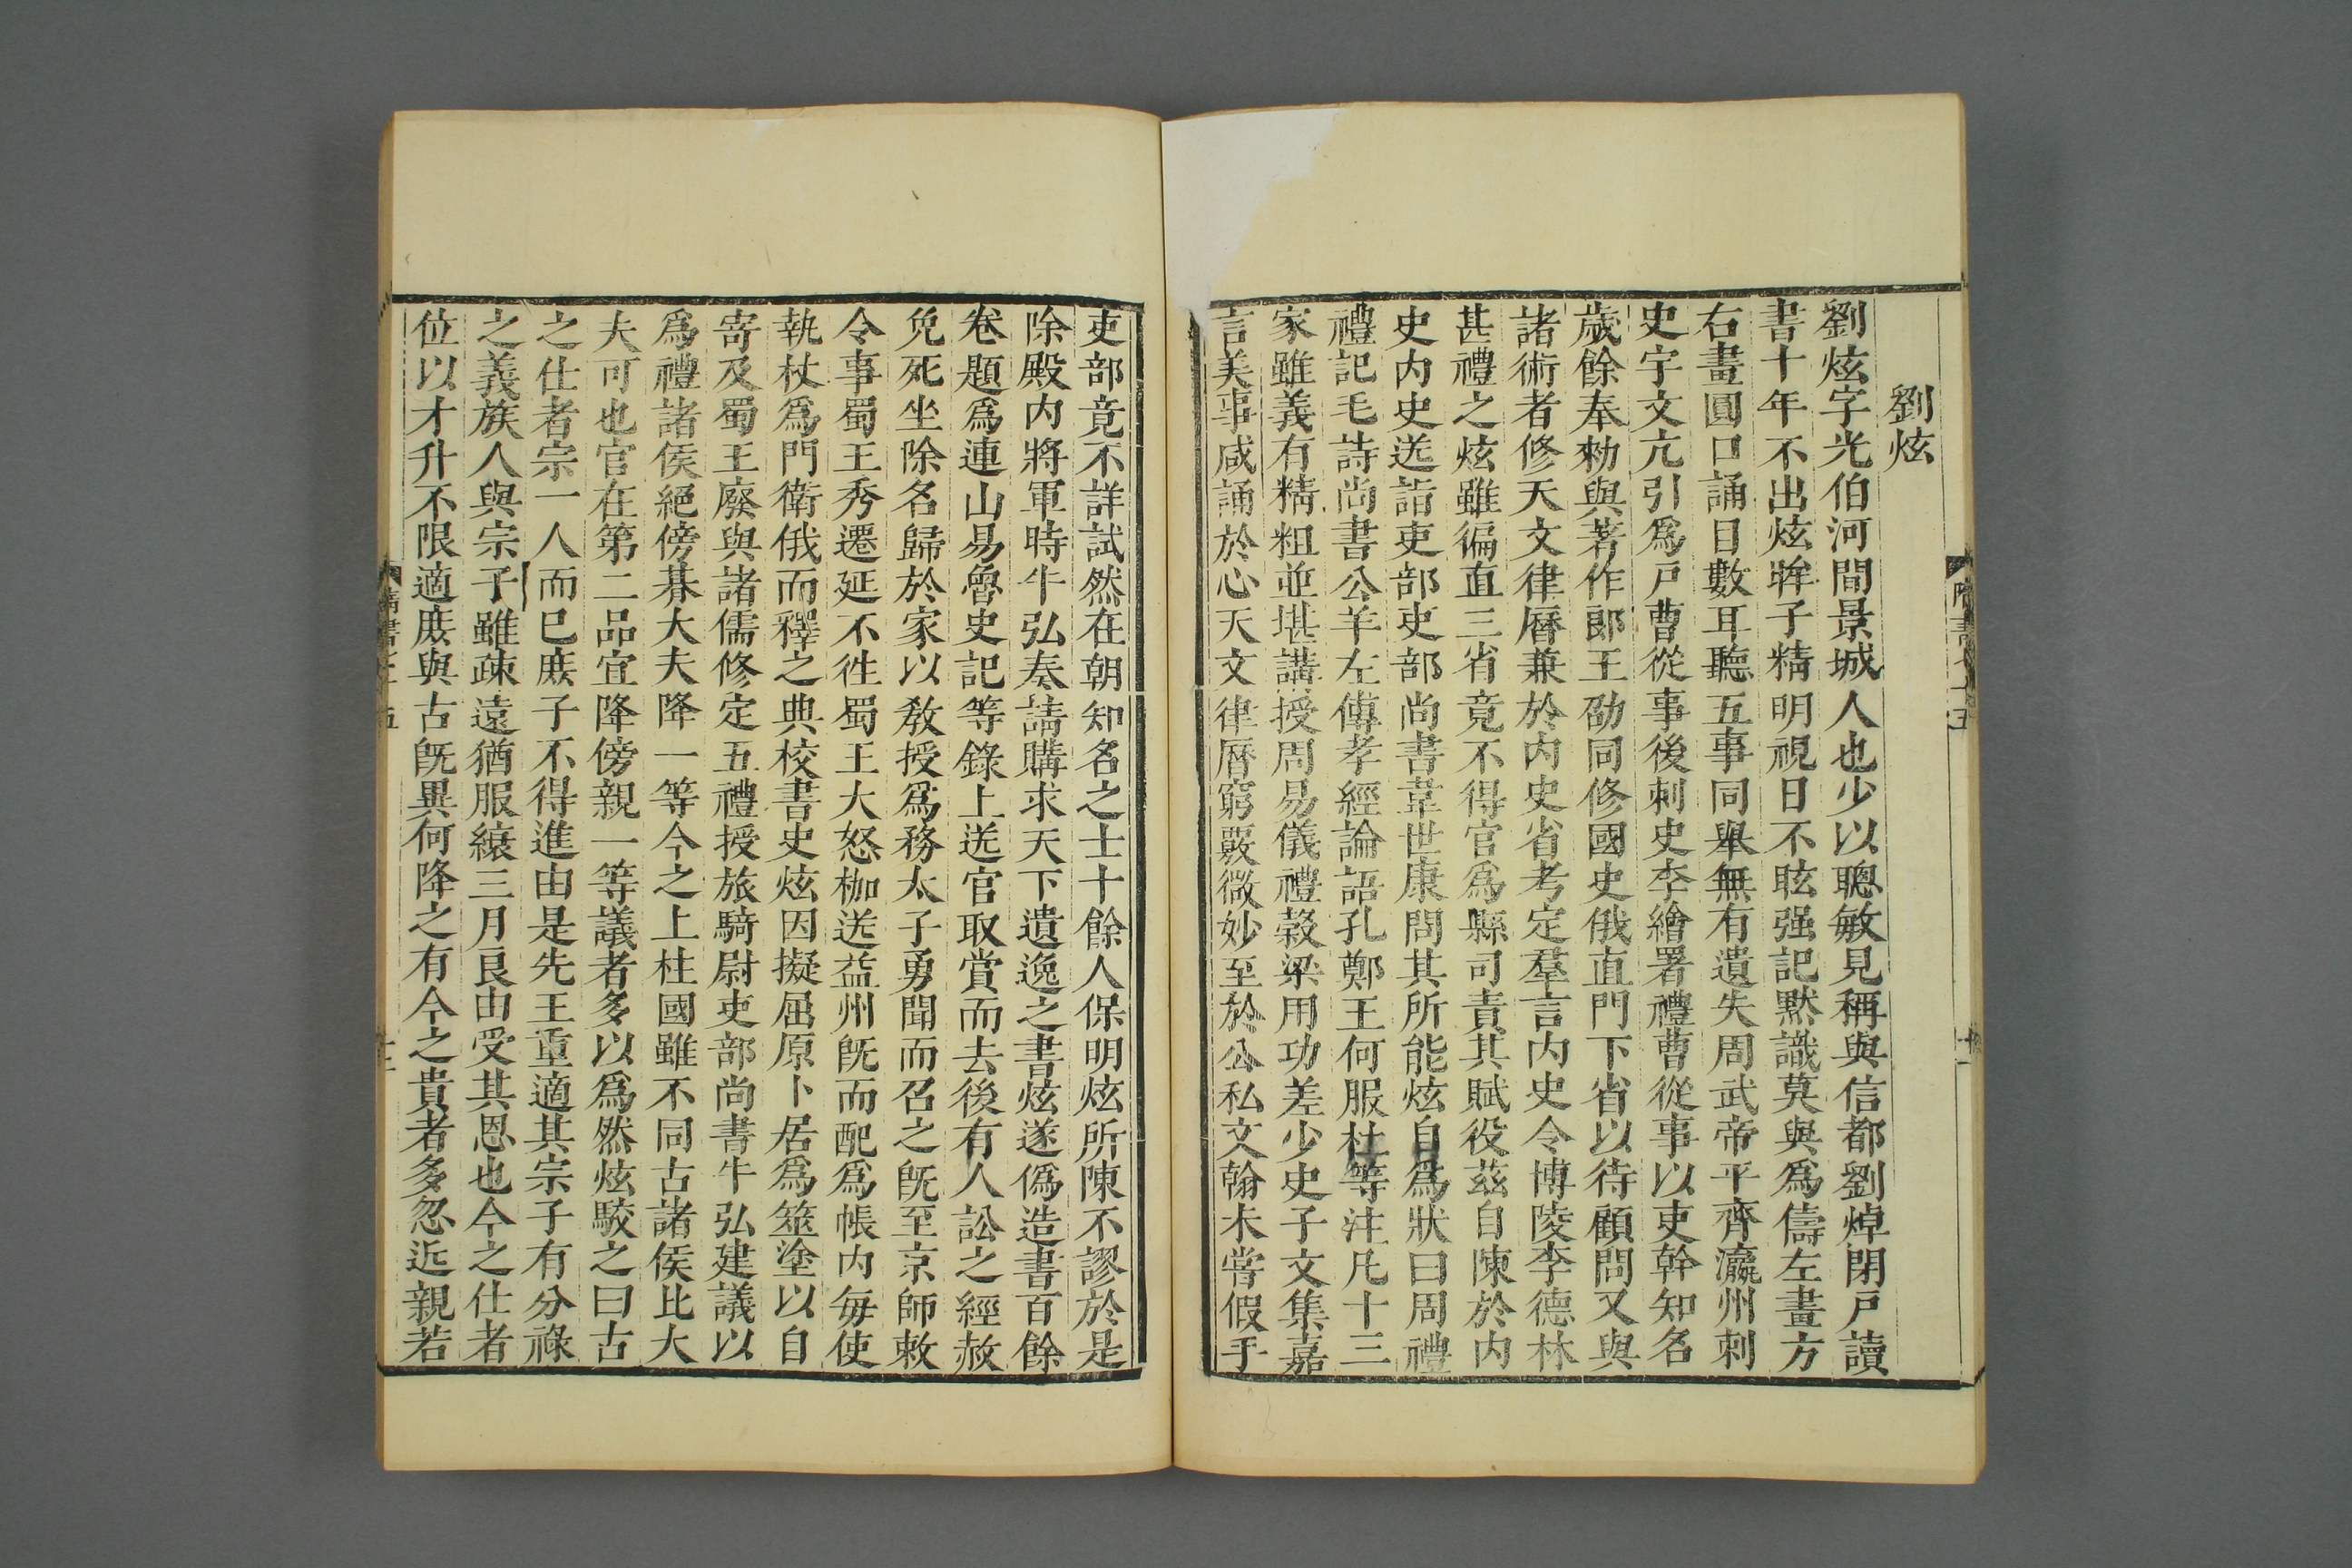 劉炫
劉炫字光伯河間景城人也少以聰敏見稱與信都劉焯閉戸讀
書十年不出炫眸子精明視日不眩强記黙識莫與爲儔左畫方
右畫圓口誦目數耳聽五事同舉無有遺失周武帝平齊瀛州刺
史宇文亢引爲戸曹從事後刺史李繪署禮曹從事以吏幹知名
歲餘奉勑與著作郎王劭同修國史俄直門下省以待顧問又與
諸術者修天文律曆兼於内史省考定羣言内史令博陵李德林
甚禮之炫雖徧直三省竟不得官爲縣司責其賦役茲自陳於内
史内史送詣吏部吏部尚書韋世康問其所能炫自爲狀曰周禮
禮記毛詩尚書公羊左傳孝經論語孔鄭王何服杜等注凡十三
家雖義有精粗並堪講授周易儀禮榖梁用功差少史子文集嘉
言美事咸誦於心天文律曆窮覈微妙至於公私文翰未嘗假手
吏部竟不詳試然在朝知名之士十餘人保明炫所陳不謬於是
除殿内將軍時牛弘奏請購求天下遺逸之書炫遂僞造書百餘
卷題爲連山易魯史記等錄上送官取賞而去後有人訟之經赦
免死坐除名歸於家以敎授爲務太子勇聞而召之旣至京師敕
令事蜀王秀遷延不徃蜀王大怒枷送益州旣而配爲帳内每使
執杖爲門衛俄而釋之典校書史炫因擬屈原卜居爲筮塗以自
寄及蜀王廢與諸儒修定五禮授旅騎尉吏部尚書牛弘建議以
爲禮諸侯絕傍朞大夫降一等今之上柱國雖不同古諸侯比大
夫可也官在第二品宜降傍親一等議者多以爲然炫駮之曰古
之仕者宗一人而已庶子不得進由是先王重適其宗子有分祿
之義族人與宗子雖疎遠猶服縗三月良由受其恩也今之仕者
位以才升不限適庶與古旣異何降之有今之貴者多忽近親若